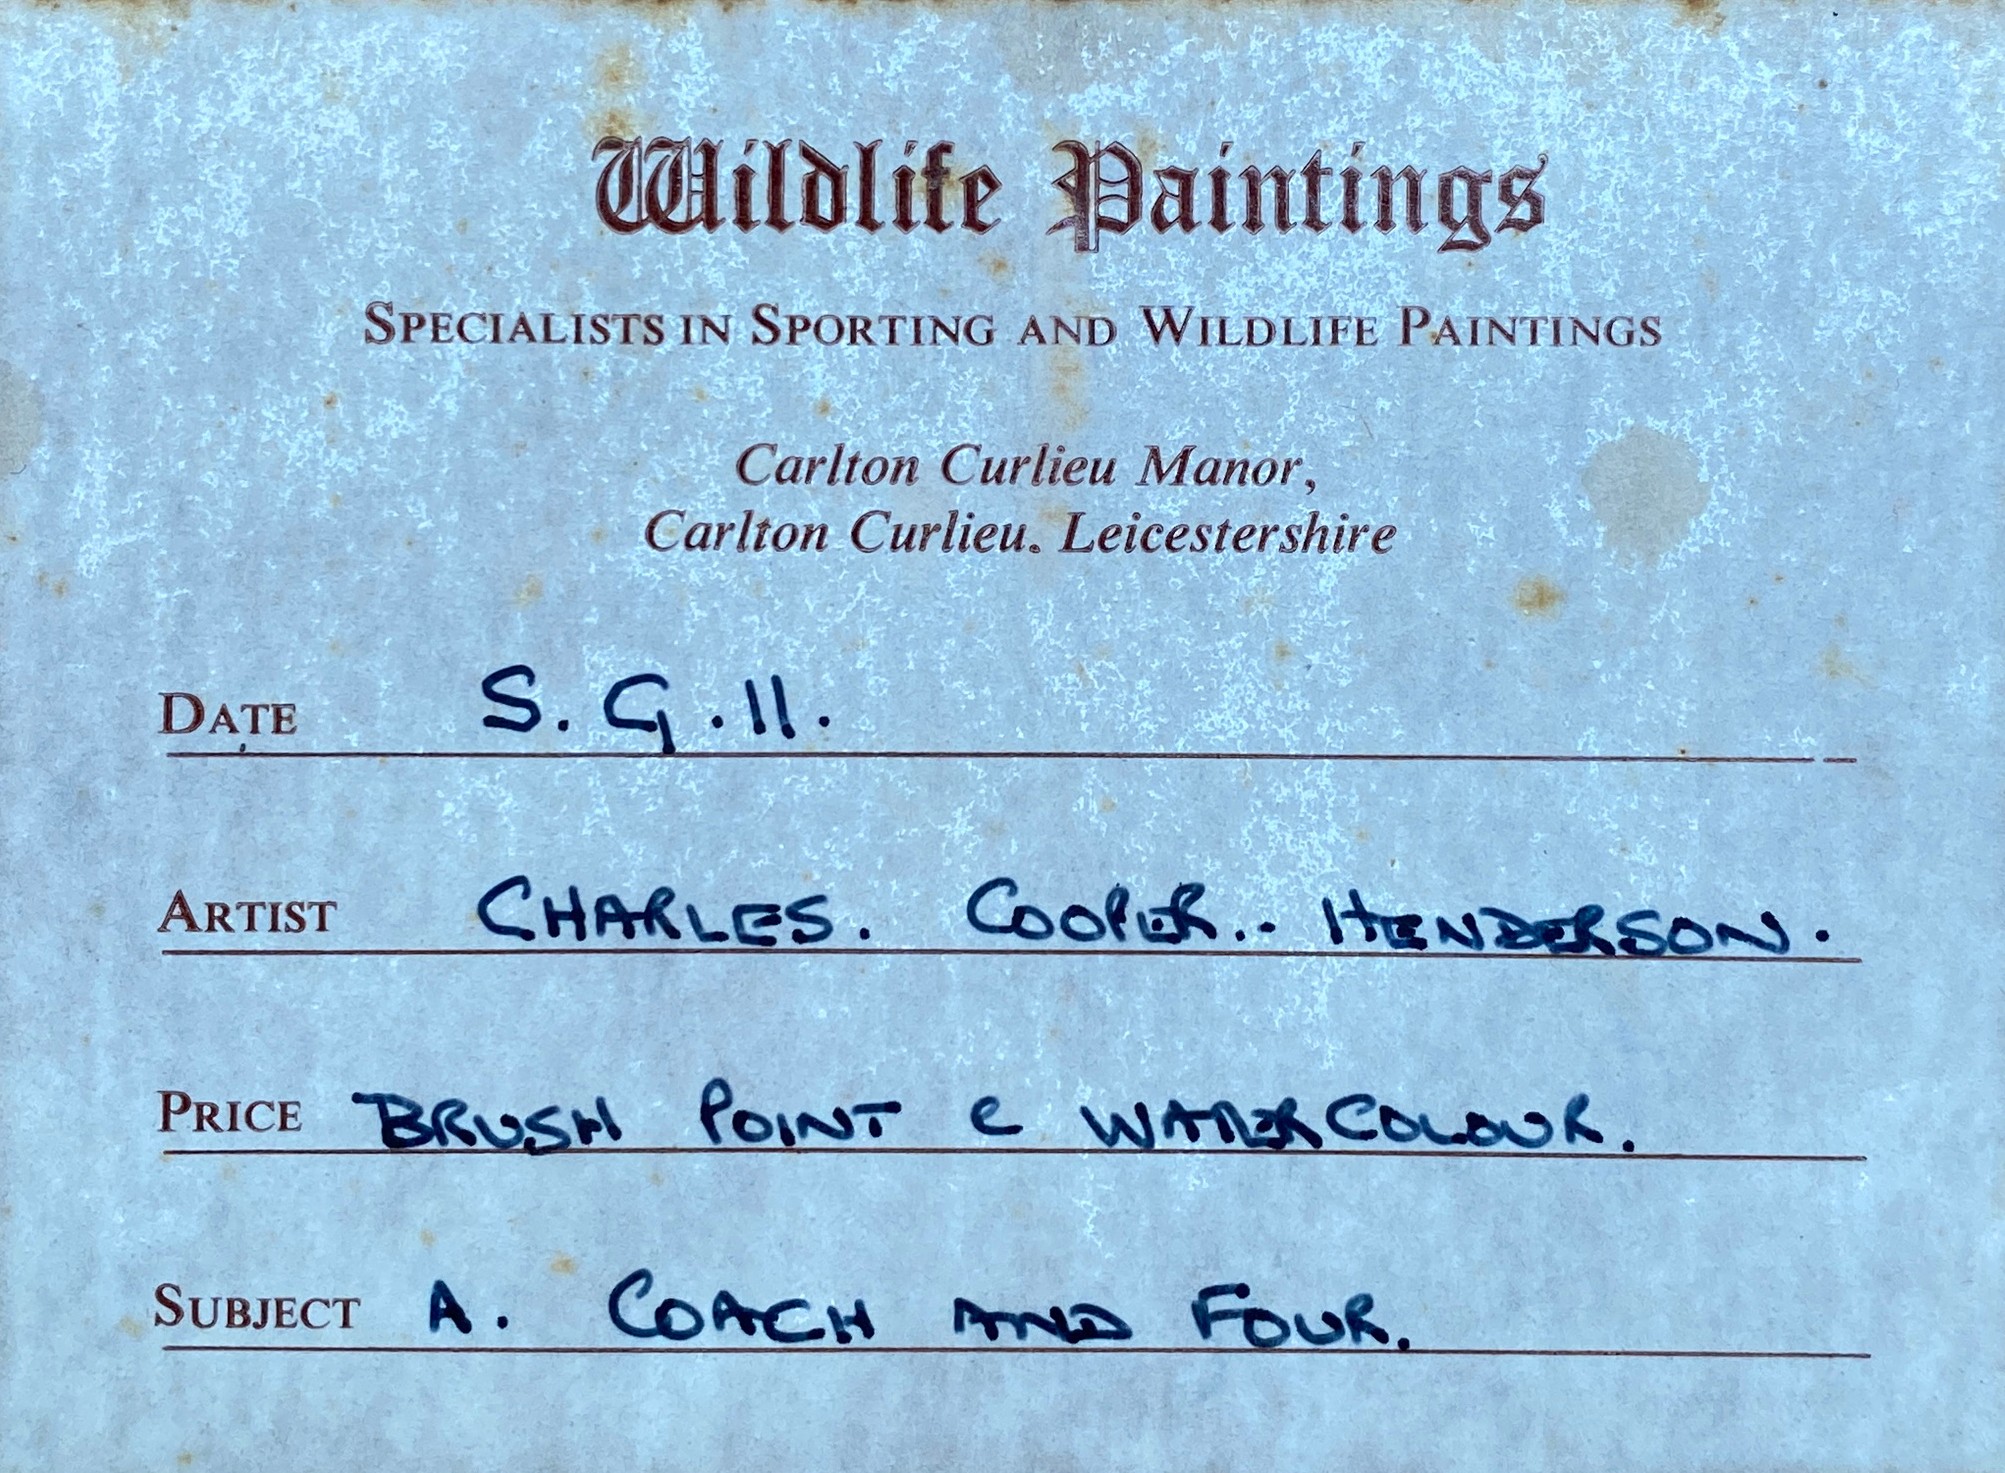 Wildlife Paintings
SPECIALISTS IN SPORTING AND WILDLIFE PAINTINGS
Carlton Curlieu Manor,
Carlton Curlieu. Leicestershire
DATE S. G. 11.
ARTIST CHARLES. COOPER.. HENDERSON.
PRICE BRUSH POINT & WATERCOLOUR.
SUBJECT A. COACH AND FOUR.